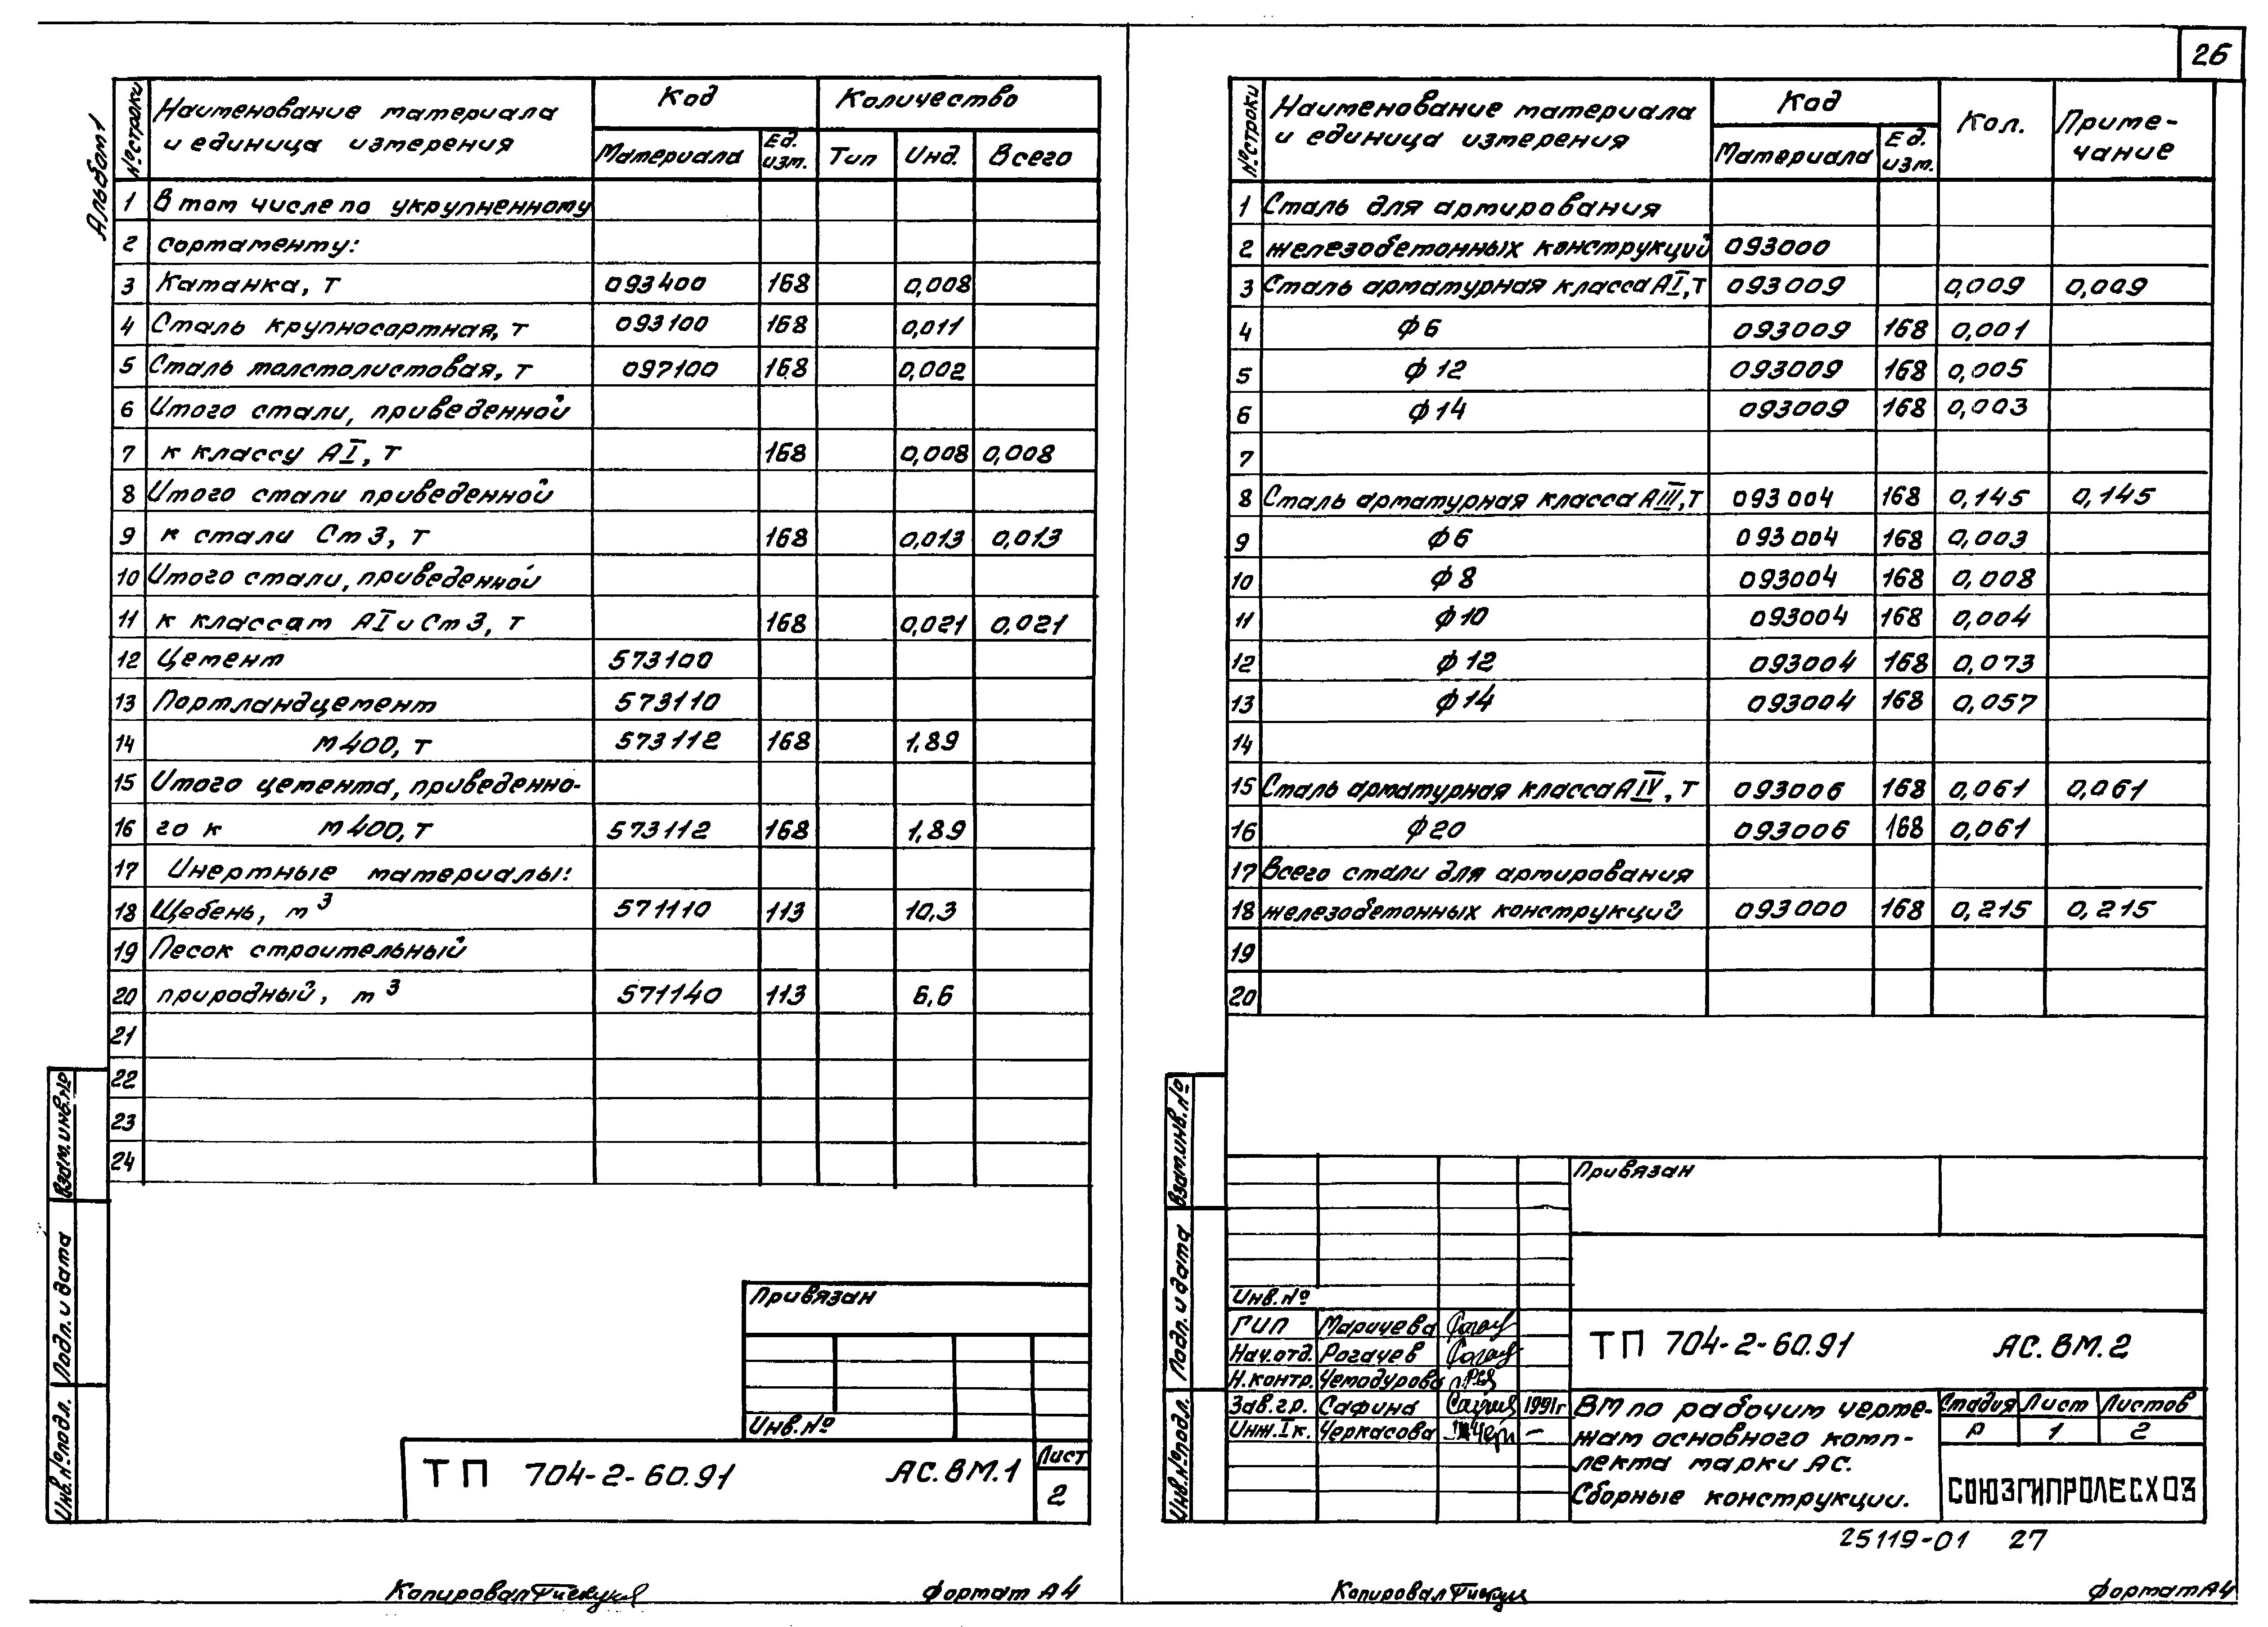 26
Альбом 1
№ строки Наименование материала и единица измерения Код Количество
Материала Ед. изм. Тип Инд. Всего
1 В том числе по укрупненному
2 сортаменту:
3 Катанка, т 093400 168 0,008
4 Сталь крупносортная, т 093100 168 0,011
5 Сталь толстолистовая, т 097100 168 0,002
6 Итого стали, приведенной
7 к классу АI, т 168 0,008 0,008
8 Итого стали приведенной
9 к стали Ст 3, т 168 0,013 0,013
10 Итого стали, приведенной
11 к классам АI и Ст 3, т 168 0,021 0,021
12 Цемент 573100
13 Портландцемент 573110
14 М400, т 573112 168 1,89
15 Итого цемента, приведенно-
16 го к М400, т 573112 168 1,89
17 Инертные материалы:
18 Щебень, м³ 571110 113 10,3
19 Песок строительный
20 природный, м³ 571140 113 6,6
21
22
23
24
Взам. инв. №
Подп. и дата
Инв. № подл.
Привязан
Инв. №
ТП 704-2-60.91 АС.ВМ.1 Лист
2
Копировал
Формат А4
№ строки Наименование материала и единица измерения Код Кол. Приме-
чание
Материала Ед. изм.
1 Сталь для армирования
2 железобетонных конструкций 093000
3 Сталь арматурная класса АI, т 093009 0,009 0,009
4 ф 6 093009 168 0,001
5 ф 12 093009 168 0,005
6 ф 14 093009 168 0,003
7
8 Сталь арматурная класса АIII, т 093004 168 0,145 0,145
9 ф 6 093004 168 0,003
10 ф 8 093004 168 0,008
11 ф 10 093004 168 0,004
12 ф 12 093004 168 0,073
13 ф 14 093004 168 0,057
14
15 Сталь арматурная класса АIV, т 093006 168 0,061 0,061
16 ф 20 093006 168 0,061
17 Всего стали для армирования
18 железобетонных конструкций 093000 168 0,215 0,215
19
20
Взам. инв. №
Подп. и дата
Инв. № подл.
Привязан
Инв. №
ГИП Маричева
Нач. отд. Рогачев
Н. контр. Чемодурова
Зав. гр. Сафина 1991г
Инж. I к. Черкасова
ТП 704-2-60.91 АС.ВМ.2
ВМ по рабочим черте-
жам основного комп-
лекта марки АС.
Сборные конструкции.
Стадия Лист Листов
Р 1 2
СОЮЗГИПРОЛЕСХОЗ
25119-01 27
Копировал
Формат А4